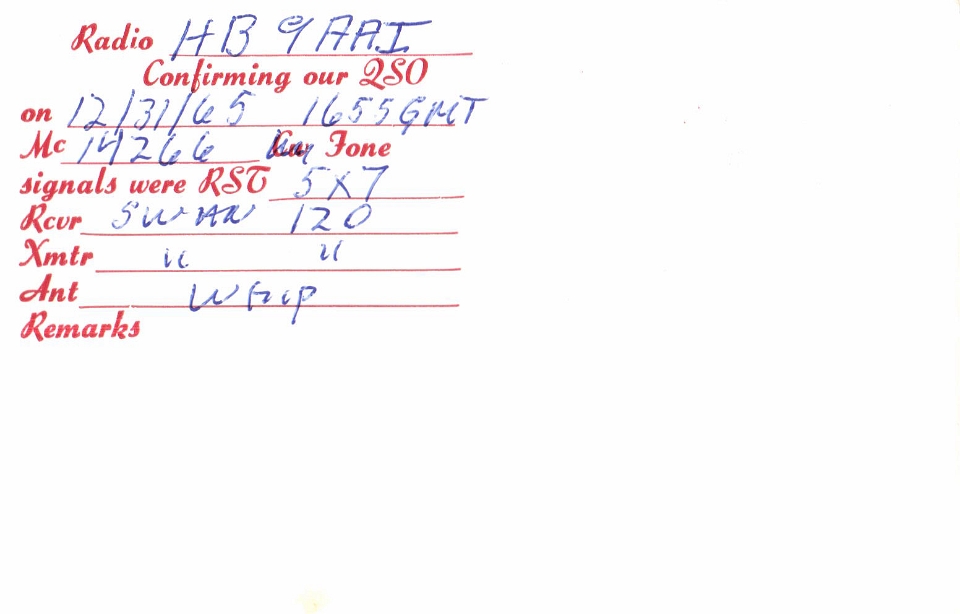 Radio HB9AAI
Confirming our QSO
on 12/31/65 1655 GMT
Mc 14266 Fone
signals were RST 5X7
Rcvr SWAN 120
Xmtr " "
Ant WHIP
Remarks